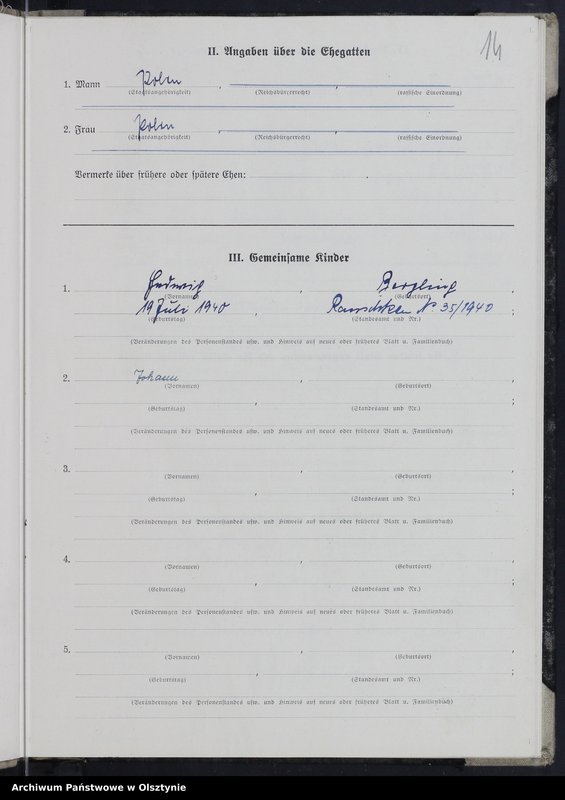 14
II. Angaben über die Ehegatten
1. Mann Polen , ,
(Staatsangehörigkeit) (Reichsbürgerrecht) (rassische Einordnung)
2. Frau Polen , ,
(Staatsangehörigkeit) (Reichsbürgerrecht) (rassische Einordnung)
Vermerke über frühere oder spätere Ehen:
III. Gemeinsame Kinder
1. Hedwig ,
(Vornamen) (Geburtsort)
19 Juli 1940 , № 35/1940 ;
(Geburtstag) (Standesamt und Nr.)
(Veränderungen des Personenstandes usw. und Hinweis auf neues oder früheres Blatt u. Familienbuch)
2. Johann , ,
(Vornamen) (Geburtsort)
, ;
(Geburtstag) (Standesamt und Nr.)
(Veränderungen des Personenstandes usw. und Hinweis auf neues oder früheres Blatt u. Familienbuch)
3. , ,
(Vornamen) (Geburtsort)
, ;
(Geburtstag) (Standesamt und Nr.)
(Veränderungen des Personenstandes usw. und Hinweis auf neues oder früheres Blatt u. Familienbuch)
4. , ,
(Vornamen) (Geburtsort)
, ;
(Geburtstag) (Standesamt und Nr.)
(Veränderungen des Personenstandes usw. und Hinweis auf neues oder früheres Blatt u. Familienbuch)
5. , ,
(Vornamen) (Geburtsort)
, ;
(Geburtstag) (Standesamt und Nr.)
(Veränderungen des Personenstandes usw. und Hinweis auf neues oder früheres Blatt u. Familienbuch)
Archiwum Państwowe w Olsztynie